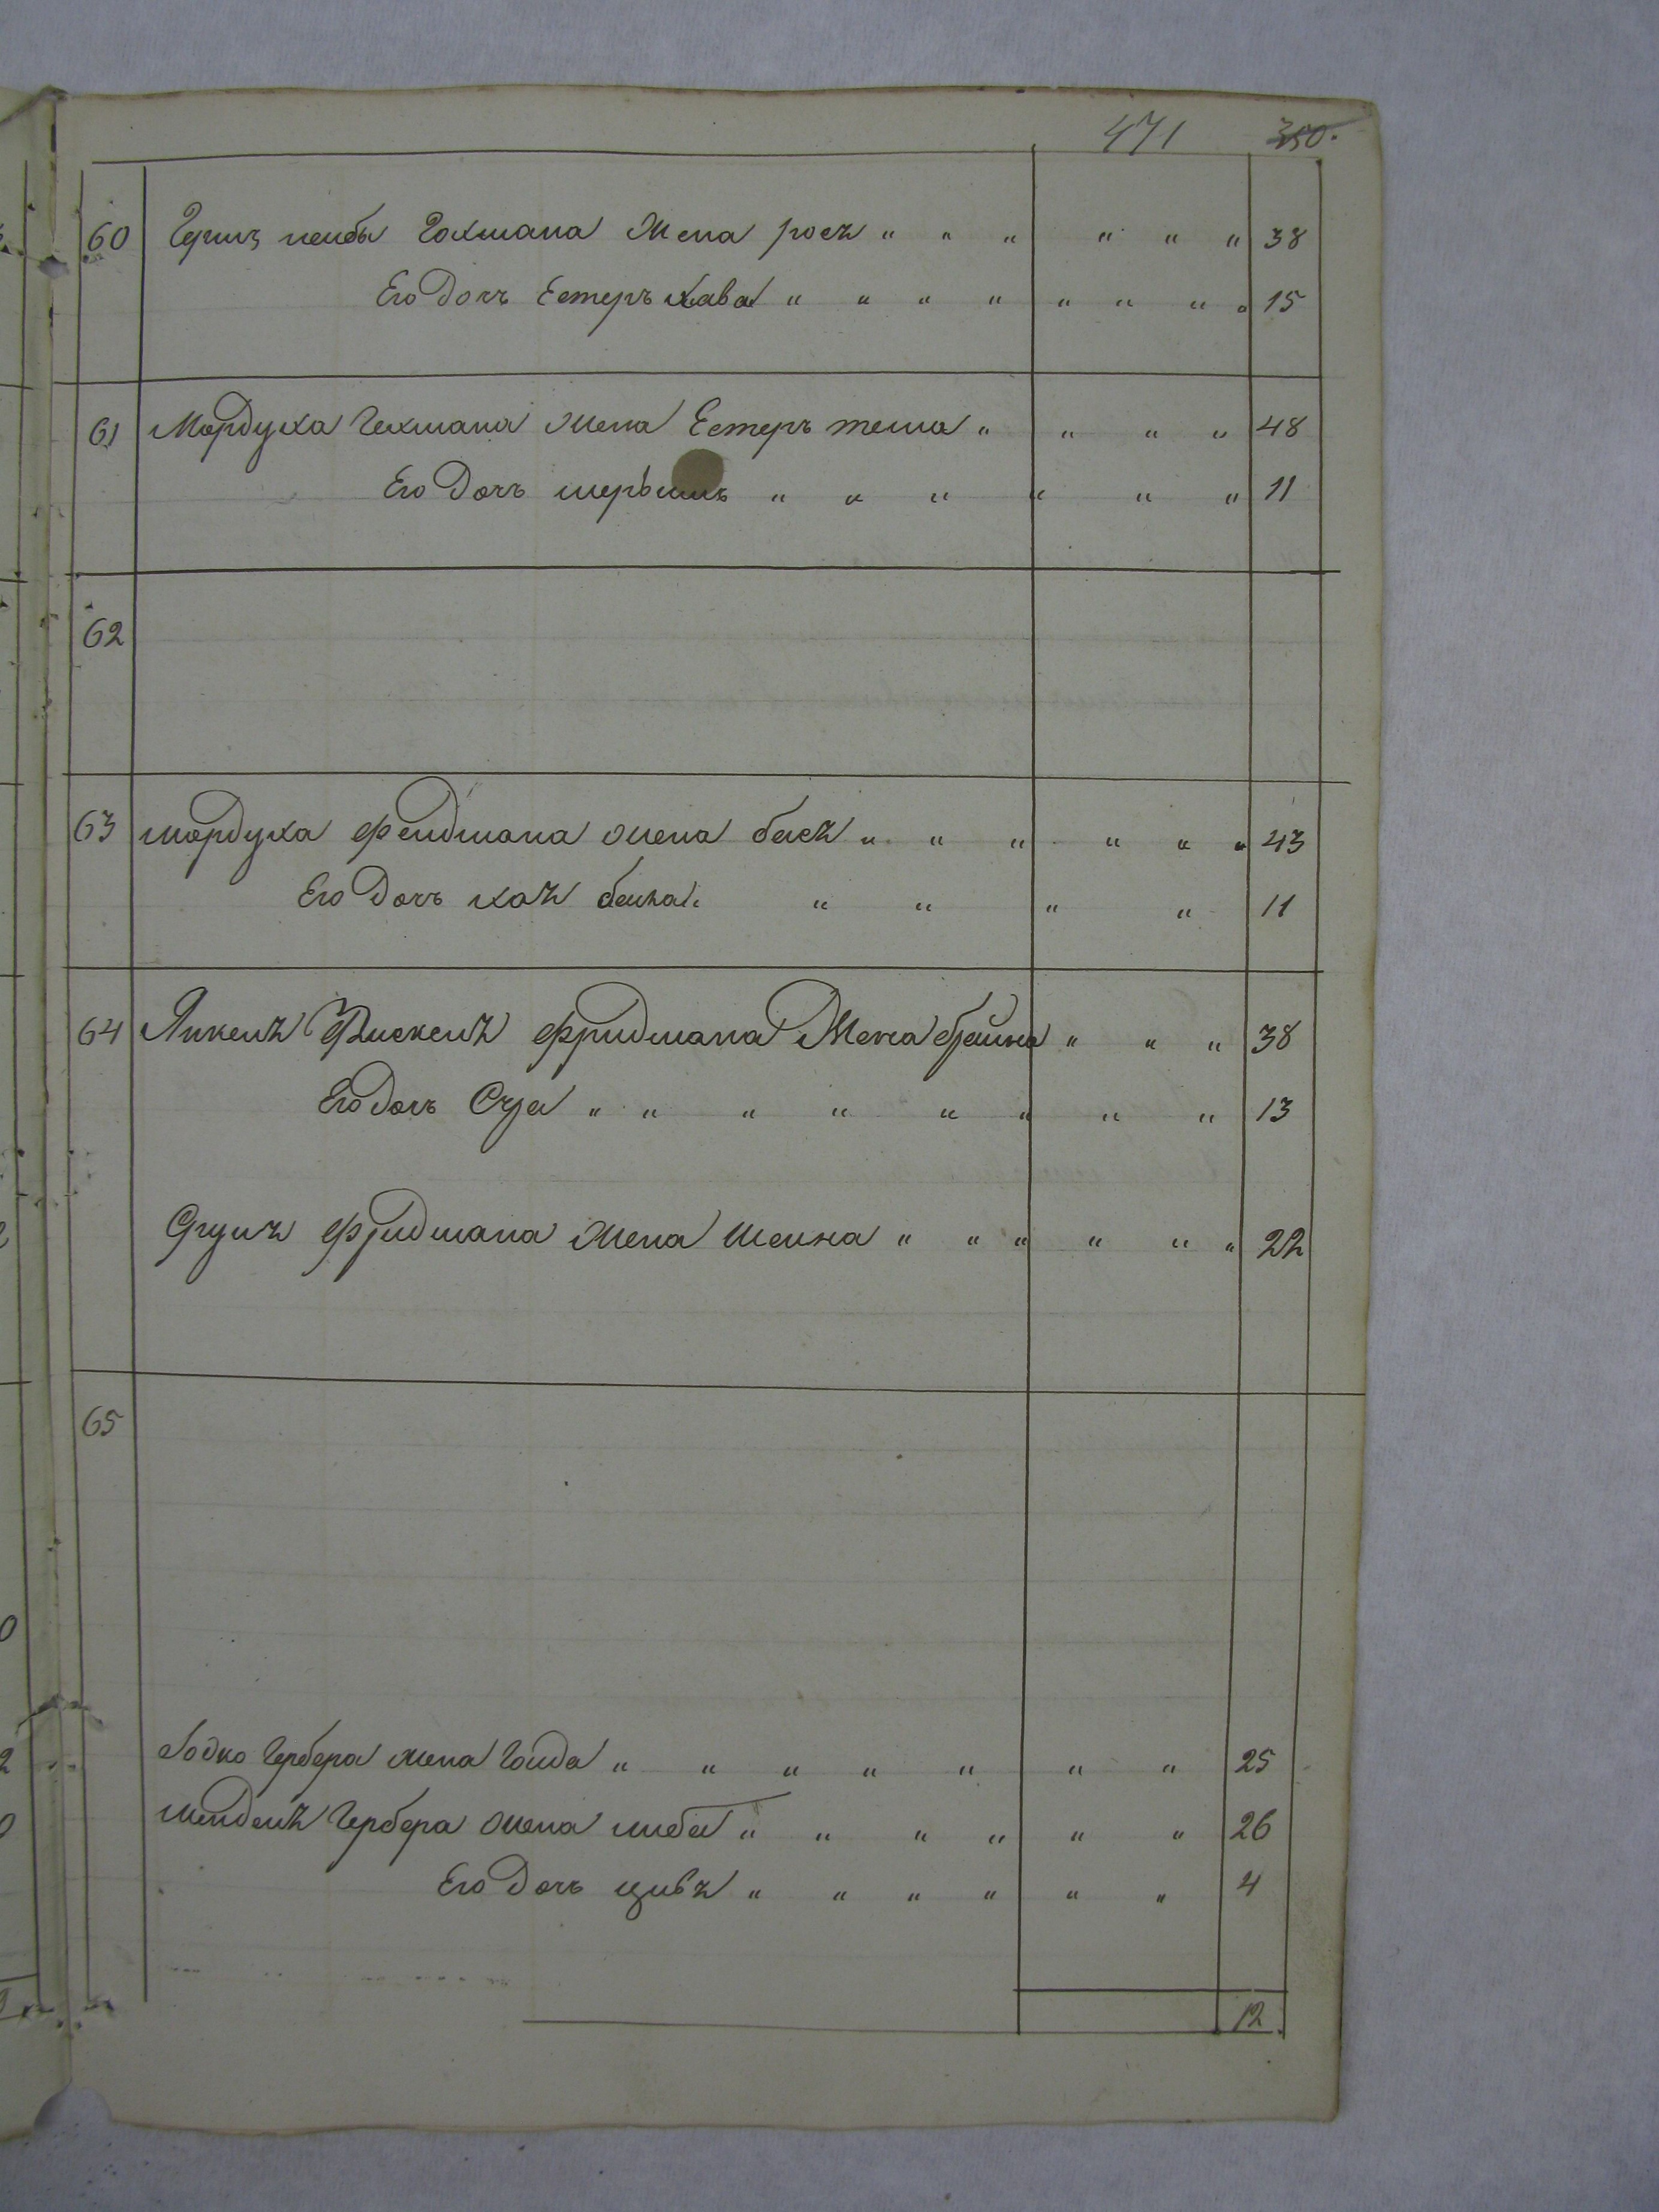 471 350.
60 Герш лейбы Гохмана Жена рося " " " " " " 38
Его Дочь Естеръ хава " " " " " " " " 15
61 Мордуха Гехмана Жена Естеръ теша " " " " 48
Его Дочь " " " " " " 11
62
63 мордуха Фельдмана жена бася " " " " " " 43
Его Дочь хая бейла " " " " 11
64 Янкель Фискель Фридмана Жена брайна " " " 38
Его Дочь Сура " " " " " " " " 13
Фридмана Жена Шейна " " " " " " 22
65
Гербера жена Гольда " " " " " " " 25
мендель Гербера жена либа " " " " " " 26
Его Дочь цивя " " " " " " 4
12.